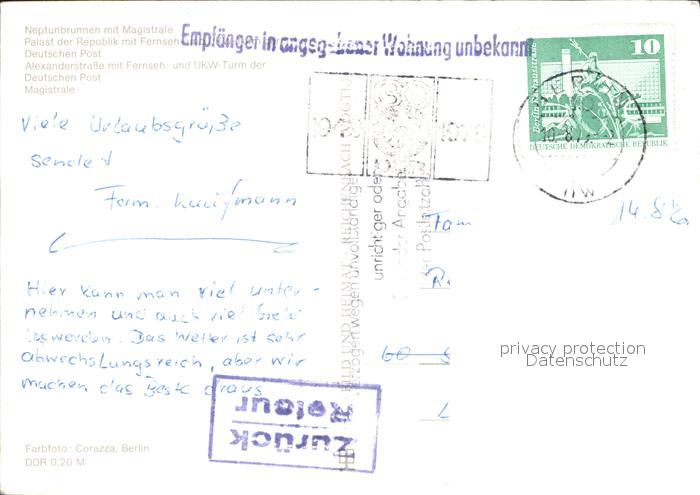 Neptunbrunnen mit Magistrale
Palast der Republik mit Fernseh
Deutschen Post
Alexanderstraße mit Fernseh- und UKW-Turm der
Deutschen Post
Magistrale
Empfänger in angegebener Wohnung unbekannt
10
Berlin, Rathausstrasse
DEUTSCHE DEMOKRATISCHE REPUBLIK
BERLIN
Viele Urlaubsgrüße
sendet
Fam. Kaufmann
Hier kann man viel unter-
nehmen und auch viel Geld
loswerden. Das Wetter ist sehr
abwechslungsreich, aber wir
machen das Beste draus
verzögert wegen unvollständiger
unrichtiger oder
der Angabe
der Postleitzahl
BILD UND HEIMAT REICHENBACH VOGTL
Fam
60
Zurück
Retour
privacy protection
Datenschutz
Farbfoto: Corazza, Berlin
DDR 0,20 M